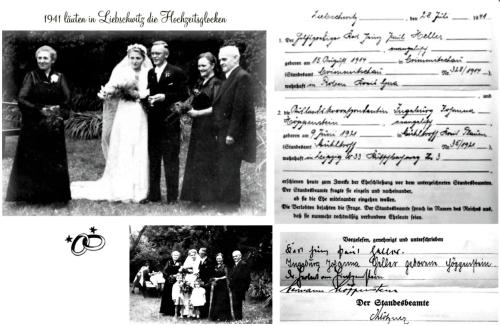 1941 läuten in Liebschwitz die Hochzeitsglocken
Liebschwitz, den 28. Juli 1941
1. Der
Karl Heinz Paul Heller
evangelisch
geboren am 12. August 1914 in Crimmitschau
(Standesamt Crimmitschau Nr. 328/1914)
wohnhaft in
und
2. die Auslandskorrespondentin Ingeburg Johanna
Höppenstein evangelisch
geboren am 9. Juni 1921 in Mühltroff
(Standesamt Mühltroff Nr. 36/1921)
wohnhaft in Leipzig W 33
erschienen heute zum Zwecke der Eheschließung vor dem unterzeichneten Standesbeamten.
Der Standesbeamte fragte sie einzeln und nacheinander,
ob sie die Ehe miteinander eingehen wollen.
Die Verlobten bejahten die Frage. Der Standesbeamte sprach im Namen des Reichs aus,
daß sie nunmehr rechtmäßig verbundene Eheleute seien.
Vorgelesen, genehmigt und unterschrieben
Karl Heinz Paul Heller.
Ingeburg Johanna Heller geborene Höppenstein.
Hermann Höppenstein
Der Standesbeamte